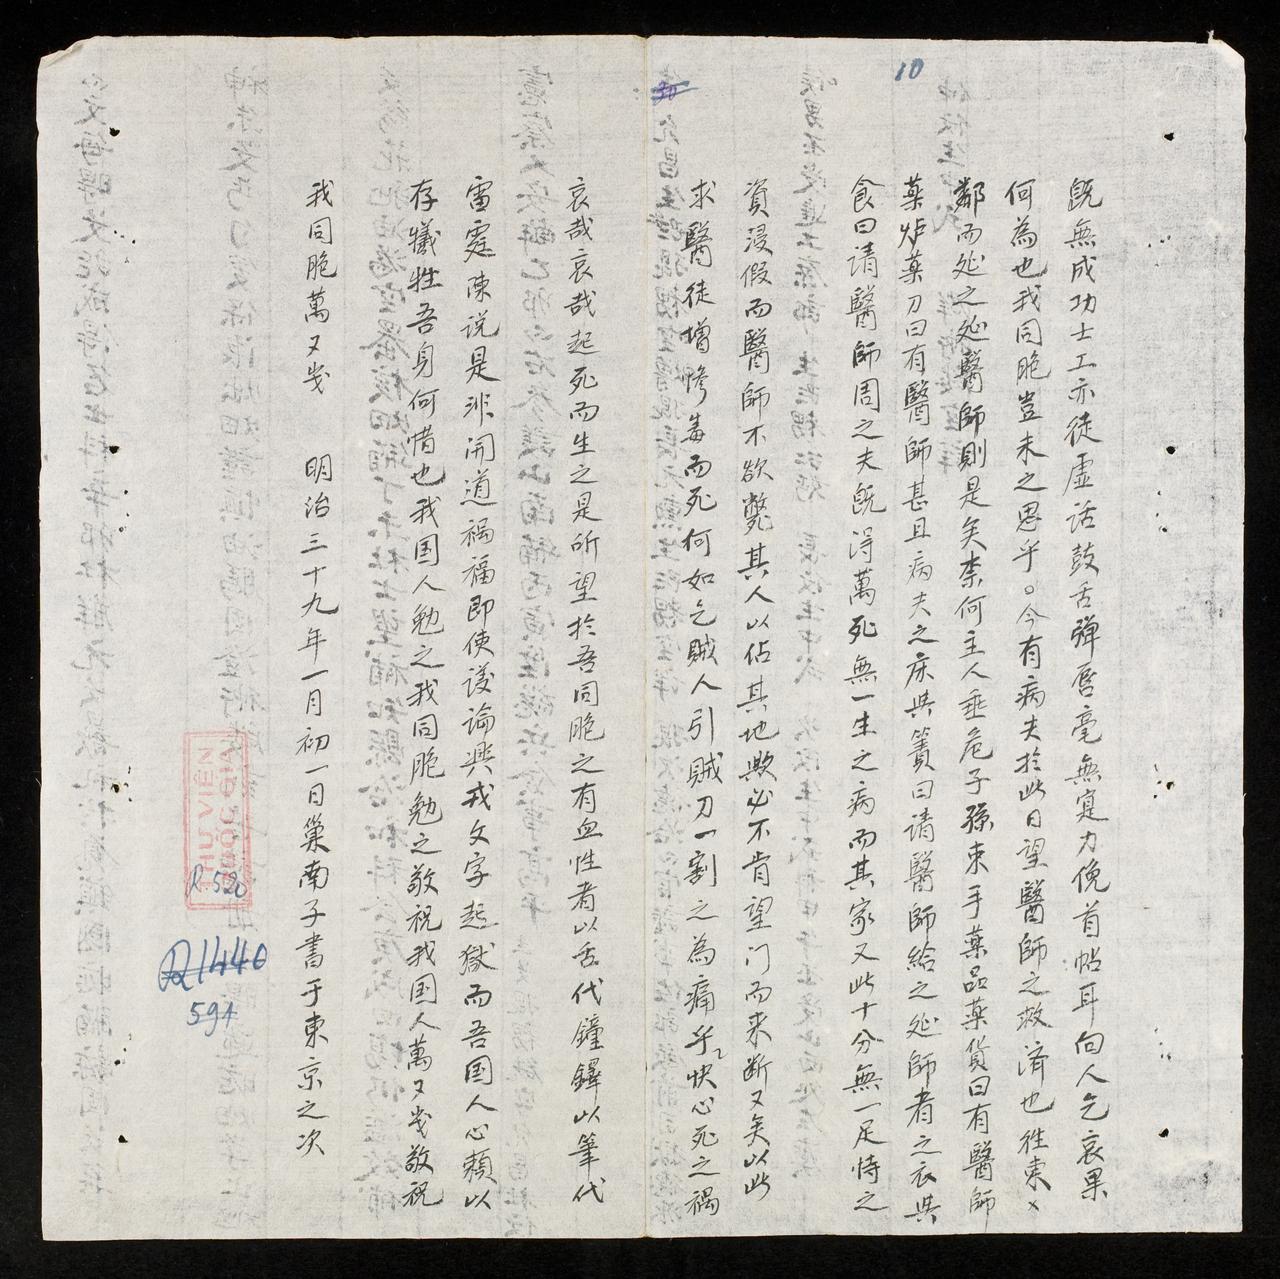 10
30
既無成功士工亦徒虛話鼓舌弾唇毫無寔力俛首帖耳向人乞哀果
何為也我同胞豈未之思乎。今有病夫於此日望醫師之救済也徃東
鄰而延之延醫師則是矣柰何主人垂危子孫束手薬品薬貨曰有醫師
薬炉薬刀曰有醫師甚且病夫之床與簀曰請醫師給之延師者之衣與
食曰請醫師周之夫既得萬死無一生之病而其家又此十分無一足恃之
資浸假而醫師不欲斃其人以佔其地歟必不肯望门而来断又矣以此
求醫徒增惨毒而死何如乞賊人引賊刀一割之為痛乎快心死之禍
哀哉哀哉起死而生之是所望於吾同胞之有血性者以舌代鐘鐸以筆代
雷霆陳説是非開道禍福即使議論興戎文字起獄而吾国人心頼以
存犠牲吾身何惜也我国人勉之我同胞勉之敬祝我国人萬又岁敬祝
我同胞萬又岁 明治三十九年一月初一日巢南子書于東京之次
THƯ VIỆN
QUỐC GIA
R.520
R1440
594